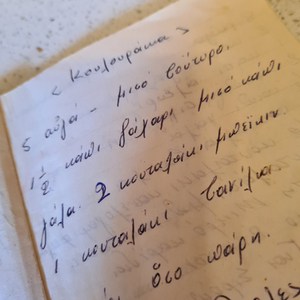 < Κουλουράκια >
5 αυγά - μισό βούτυρο.
1 1/2 κάπι ζάχαρι μισό κάπι
γάλα. 2 κουταλάκι μπέϊκιν
1 κουταλάκι βανίλια
όσο πάρη.